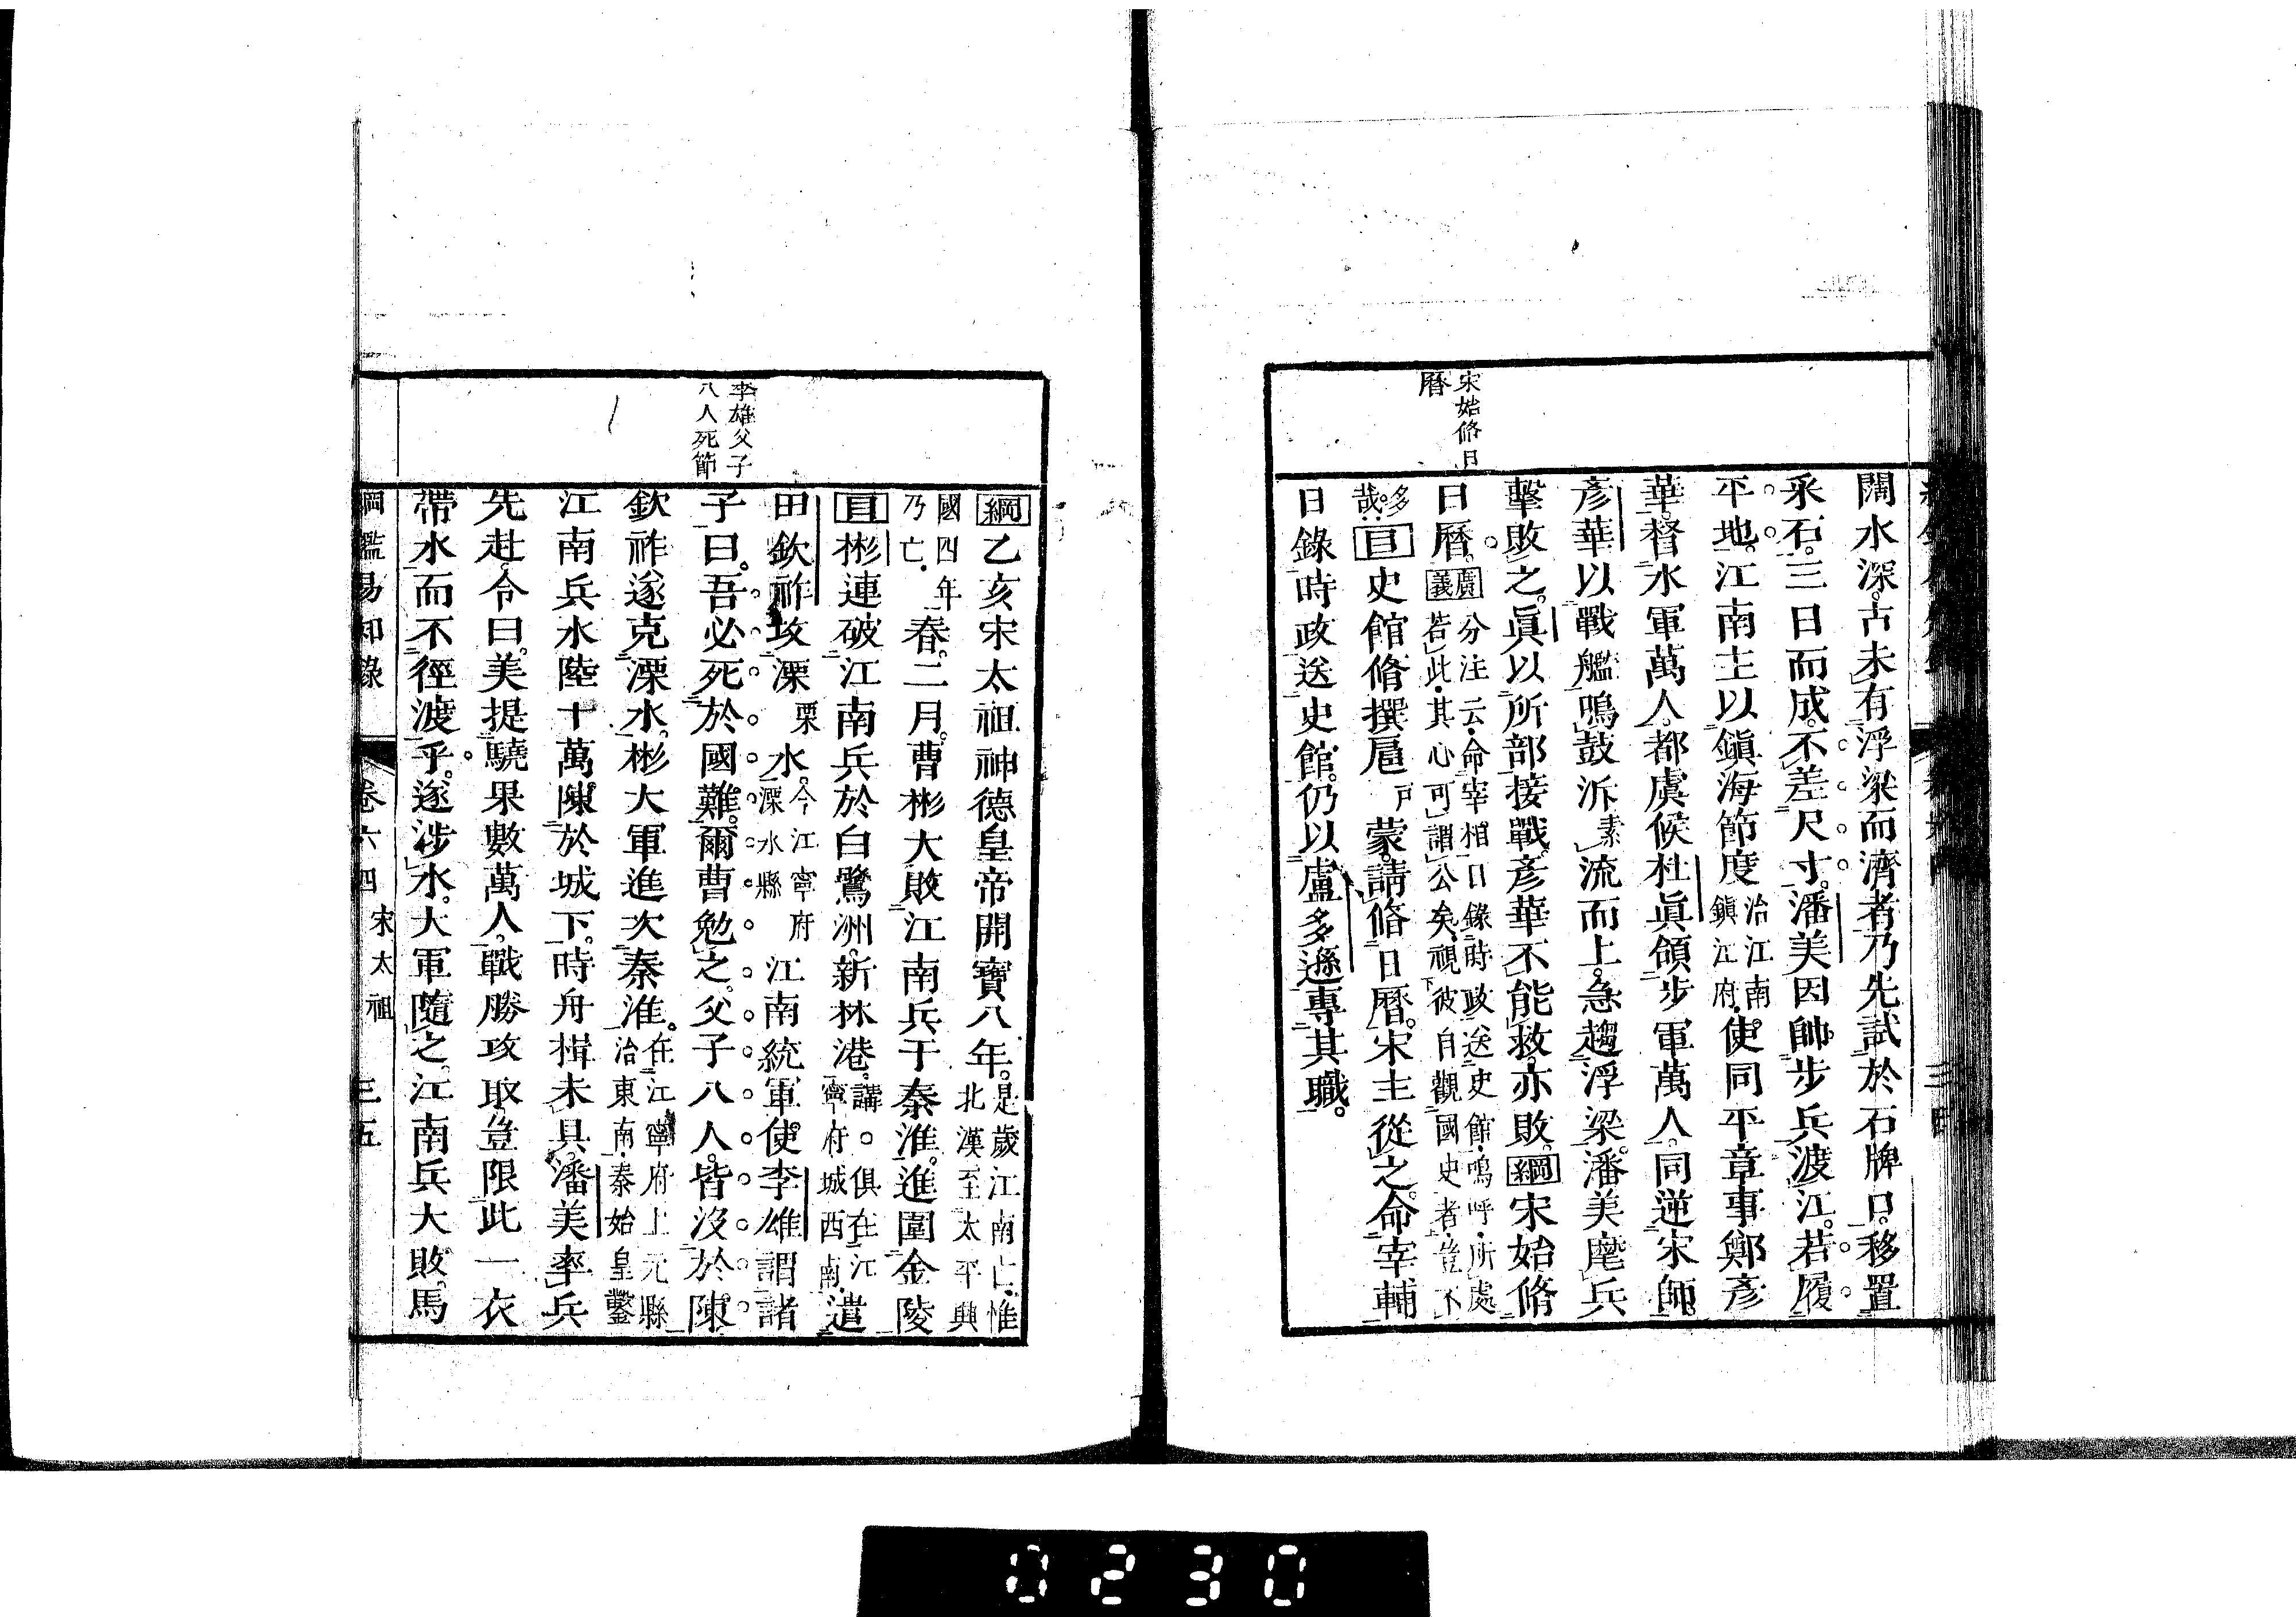 宋始脩日
曆
闊水深古未有浮梁而濟者乃先試於石牌口移置
采石三日而成不差尺寸潘美因帥步兵渡江若履
平地江南主以鎮海節度治江南鎮江府使同平章事鄭彥
華督水軍萬人都虞候杜眞領步軍萬人同逆宋師
彥華以戰艦鳴鼓泝素流而上急趨浮梁潘美麾兵
擊敗之眞以所部接戰彥華不能救亦敗綱宋始脩
日曆廣義分注云命宰相日錄時政送史館嗚呼所處若此其心可謂公矣視彼自觀國史者豈不
多哉目史館脩撰扈戶蒙請脩日曆宋主從之命宰輔
日錄時政送史館仍以盧多遜專其職
李雄父子
八人死節
綱乙亥宋太祖神德皇帝開寶八年是歲江南亡惟北漢至太平興
國四年乃亡春二月曹彬大敗江南兵于秦淮進圍金陵
目彬連破江南兵於白鷺洲新林港講俱在江寧府城西南遣
田欽祚攻溧栗水今江寧府溧水縣江南統軍使李雄謂諸
子曰吾必死於國難爾曹勉之父子八人皆沒於陳
欽祚遂克溧水彬大軍進次秦淮在江寧府上元縣治東南秦始皇鑿
江南兵水陸十萬陳於城下時舟楫未具潘美率兵
先赴令曰美提驍果數萬人戰勝攻取豈限此一衣
帶水而不徑渡乎遂涉水大軍隨之江南兵大敗馬
綱鑑易知錄 卷六四 宋太祖 三五
0230